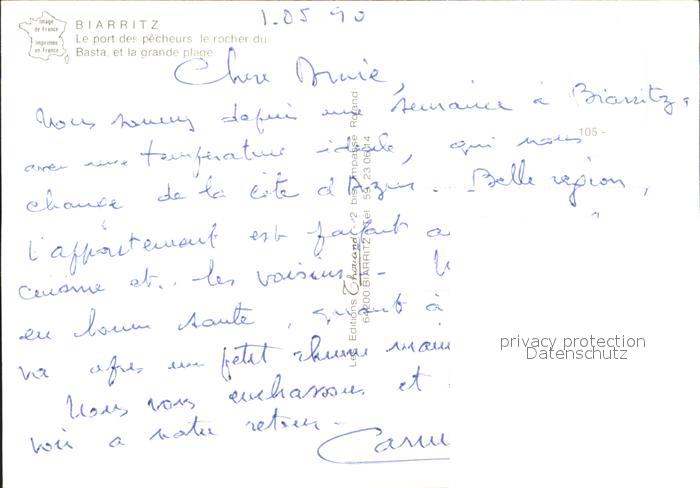 1.05 90
Image de France
Imprimée en France
BIARRITZ
Le port des pêcheurs le rocher du
Basta, et la grande plage
Chère
Nous sommes depuis une semaine à Biarritz,
avec une température idéale, qui nous
105 -
change de la Côte d'Azur. Belle région,
l'appartement est parfait
cuisine et.. les voisins -
en bonne santé, quant à
va après un petit rhume
Nous vous embrassons et
voir à notre retour -
Les Editions Chavanel 2 bis, impasse Roland
64200 BIARRITZ Tél. 59 23 06 14
privacy protection
Datenschutz